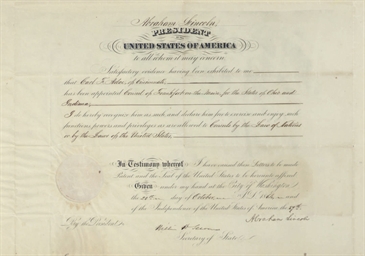 Abraham Lincoln,
PRESIDENT
OF THE
UNITED STATES OF AMERICA
to all whom it may concern.
Satisfactory evidence having been exhibited to me
that Carl F. Adae, of Cincinnati,
has been appointed Consul of Frankfort on the Main for the State of Ohio and
Indiana,
I do hereby recognize him as such and declare him free to exercise and enjoy such
functions, powers and privileges as are allowed to Consuls by the Law of Nations
or by the Laws of the United States.
In Testimony whereof I have caused these Letters to be made
Patent and the Seal of the United States to be hereunto affixed
Given under my hand at the City of Washington
the of October A.D. 186 and
of the Independence of the United States of America, the 87th.
Abraham Lincoln
By the President
Secretary of State